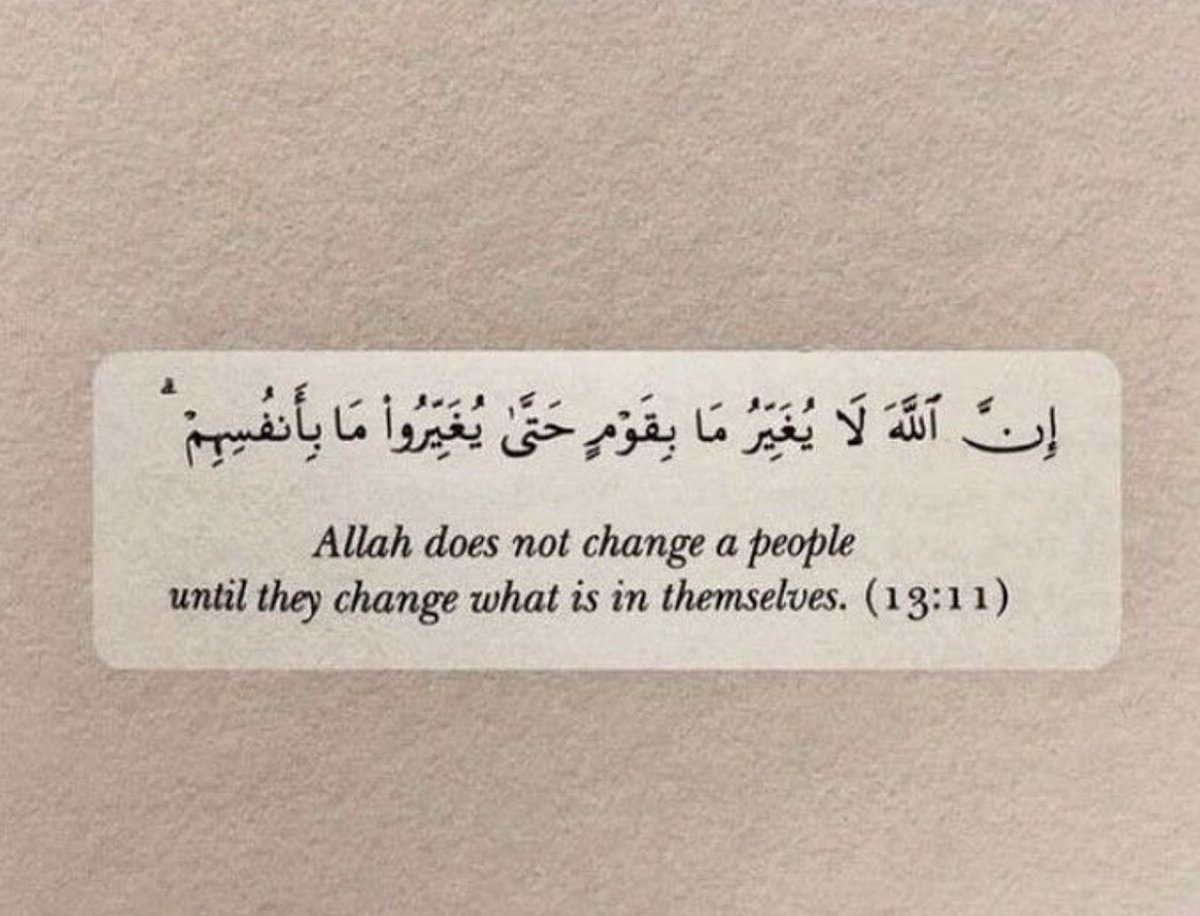 إِنَّ ٱللَّهَ لَا يُغَيِّرُ مَا بِقَوْمٍ حَتَّىٰ يُغَيِّرُوا۟ مَا بِأَنفُسِهِمْ ۗ
Allah does not change a people
until they change what is in themselves. (13:11)